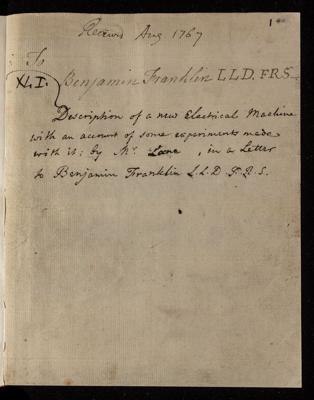 1
Received Aug 1767
To
XLI. Benjamin Franklin LLD. FRS
Description of a new Electrical Machine
with an account of some experiments made
with it: by Mr. Lane, in a Letter
to Benjamin Franklin L.L.D. F.R.S.